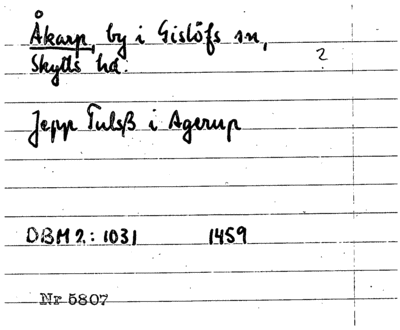 Åkarp, by i Gislöfs sn,
Skytts hd. ?
Jepp Tulsß i Agerup
DBM 2: 1031 1459
Nr 5807